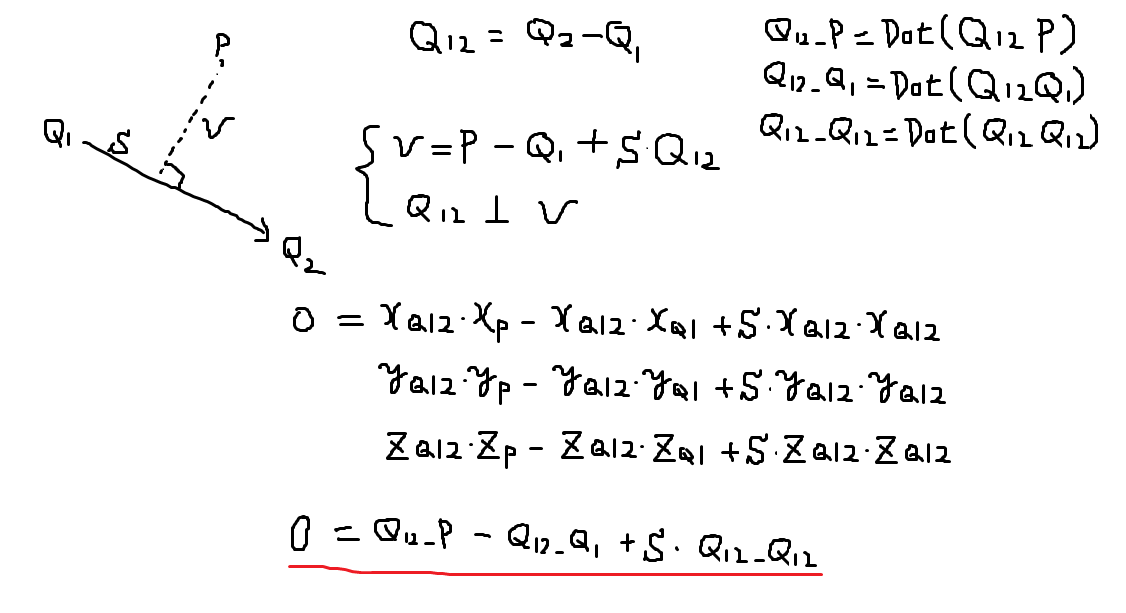 P
Q1
S
V
Q2
Q12 = Q2 - Q1
V = P - Q1 + S·Q12
Q12 ⊥ V
Q12_P = Dot(Q12 P)
Q12_Q1 = Dot(Q12 Q1)
Q12_Q12 = Dot(Q12 Q12)
0 = xQ12·xP - xQ12·xQ1 + S·xQ12·xQ12
yQ12·yP - yQ12·yQ1 + S·yQ12·yQ12
zQ12·zP - zQ12·zQ1 + S·zQ12·zQ12
0 = Q12_P - Q12_Q1 + S·Q12_Q12